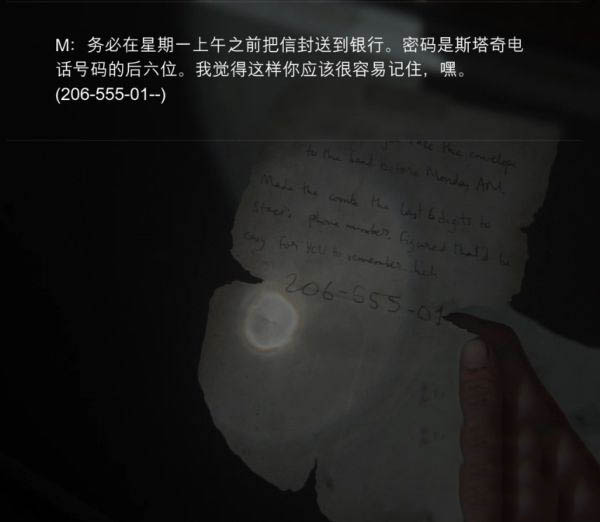 M：务必在星期一上午之前把信封送到银行。密码是斯塔奇电
话号码的后六位。我觉得这样你应该很容易记住，嘿。
(206-555-01--)
the envelope
to the bank before Monday AM.
Made the combo the last 6 digits to
Staci's phone number. Figured that'd be
easy for you to remember heh
206-555-01